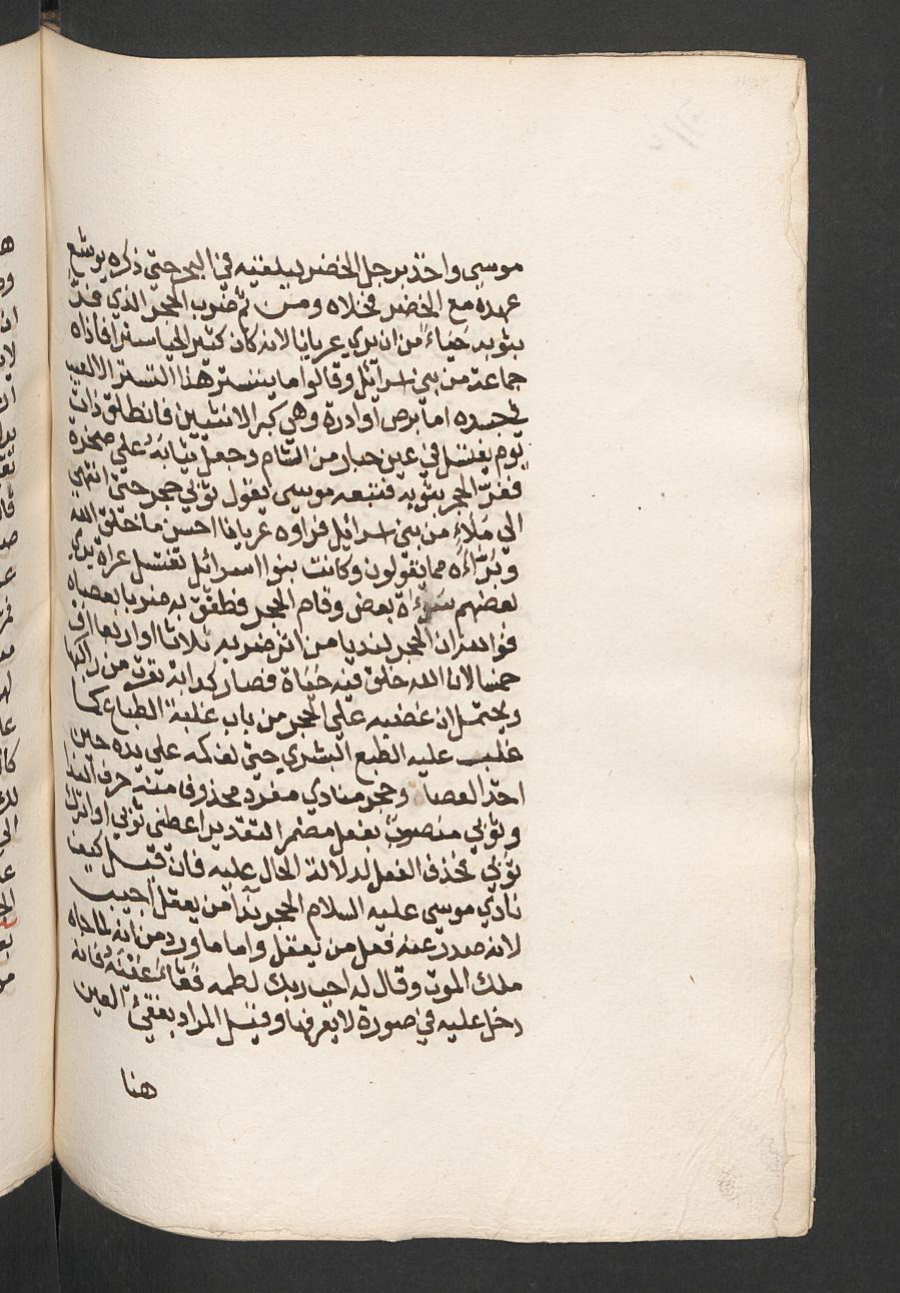 موسى واخذ برجل الخضر ليلقيه في البحر حتى ذكره يوشع
عهده مع الخضر فخلاه ومن ثم ضرب الحجر الذي فر
بثوبه حياء من ان يري عريانا لانه كان كثير الحيا ستيرا فاذاه
جماعة من بني اسرائل وقالوا ما يتستر هذا التستر الا لعيب
في جسده اما برص او ادرة وهي كبر الانثيين فانطلق ذات
يوم يغتسل في عين حبار من الشام وجعل ثيابه علي صخرة
ففر الحجر بثوبه فتبعه موسى يقول ثوبي حجر حتى انتهي
الي ملاء من بني اسرائيل فراوه عريانا احسن ما خلق الله
وبراءه مما يقولون وكانت بنوا اسرائل تغتسل عراة يري
بعضهم سوءاة بعض وقام الحجر فطفق به ضربا بعصاه
فوالله ان الحجر لنديا من اثر ضربه ثلاثا او اربعا او
خمسا لان الله خلق فيه حياة فصار كدابة نفرت من راكبها
ويحتمل ان غضبه علي الحجر من باب غلبة الطباع كما
غلب عليه الطبع البشري حتى لف كمه على يده حين
اخذ العصا وحجر منادي مفرد محذوفا منه حرف الندا
وثوبي منصوب بفعل مضمر التقدير اعطني ثوبي او اترك
ثوبي فحذف الفعل لدلالة الحال عليه فان قيل كيف
نادي موسى عليه السلام الحجر نداء من يعقل اجيب
لانه صدر عنه فعل من يعقل واما ما ورد من انه لما جاه
ملك الموت وقال له اجب ربك لطمه ففقاء عينه فانه
دخل عليه في صورة لا يعرفها وقيل المراد بفقئ العين
هنا